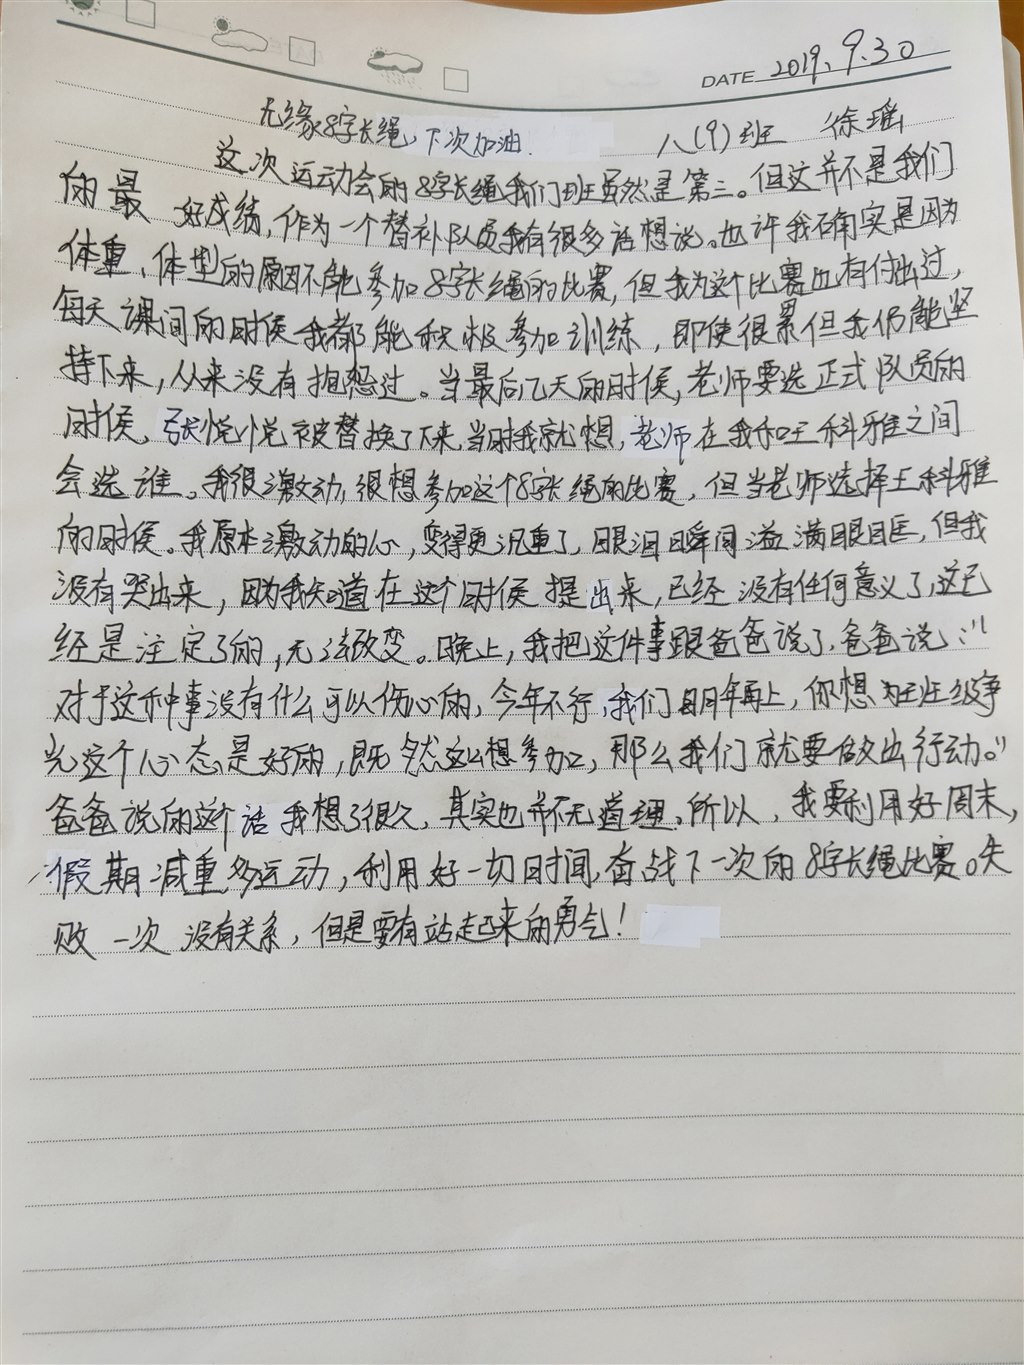 DATE 2019.9.30
无缘8字长绳,下次加油. 八(9)班 徐瑶
这次运动会的8字长绳我们班虽然是第三。但这并不是我们
的最 好成绩,作为一个替补队员我有很多话想说。也许我确实是因为
体重、体型的原因不能参加8字长绳的比赛,但我为这个比赛也有付出过,
每天课间的时侯我都能积极参加训练,即使很累但我仍能坚
持下来,从来没有抱怨过。当最后几天的时侯,老师要选正式队员的
时侯、张悦悦被替换了下来,当时我就想,老师在我和王科雅之间
会选谁。我很激动,很想参加这个8字长绳的比赛,但当老师选择王科雅
的时侯。我原本激动的心,变得更沉重了,眼泪瞬间溢满眼眶,但我
没有哭出来,因为我知道在这个时侯提出来,已经没有任何意义了,这已
经是注定了的,无法改变。晚上,我把这件事跟爸爸说了,爸爸说:“
对于这种事没有什么可以伤心的,今年不行,我们明年再上,你想为班级争
光这个心态是好的,既然这么想参加,那么我们就要做出行动。”
爸爸说的这个话我想了很久,其实也并不无道理。所以,我要利用好周末,
假期减重多运动,利用好一切时间,奋战下一次的8字长绳比赛。失
败一次没有关系,但是要有站起来的勇气!